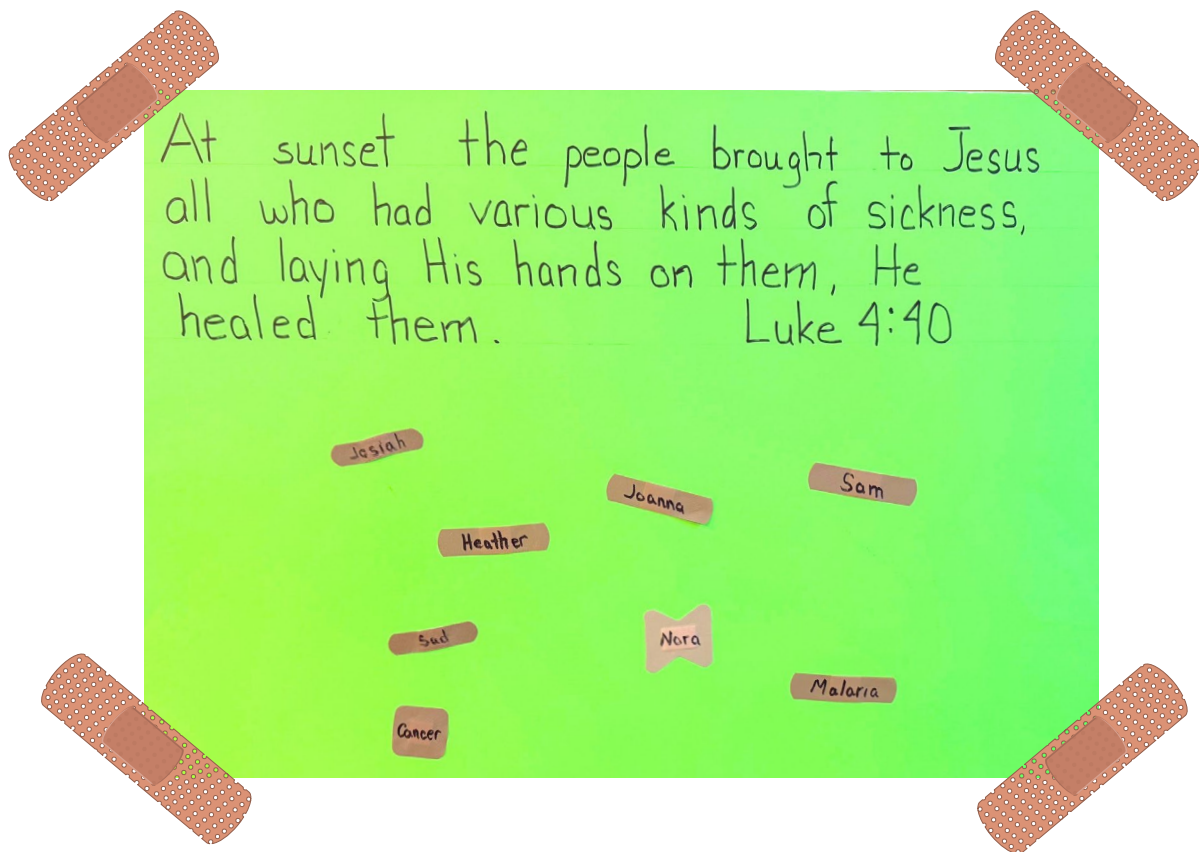 At sunset the people brought to Jesus
all who had various kinds of sickness,
and laying His hands on them, He
healed them. Luke 4:40
Josiah
Joanna
Sam
Heather
Sad
Nora
Malaria
Cancer